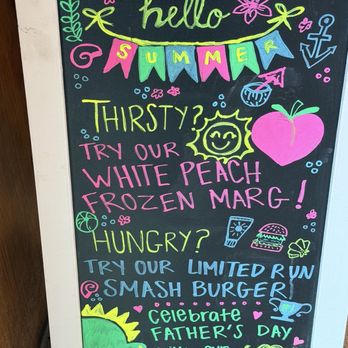 hello
SUMMER
THIRSTY?
TRY OUR
WHITE PEACH
FROZEN MARG!
HUNGRY?
TRY OUR LIMITED RUN
SMASH BURGER
Celebrate
FATHER'S DAY